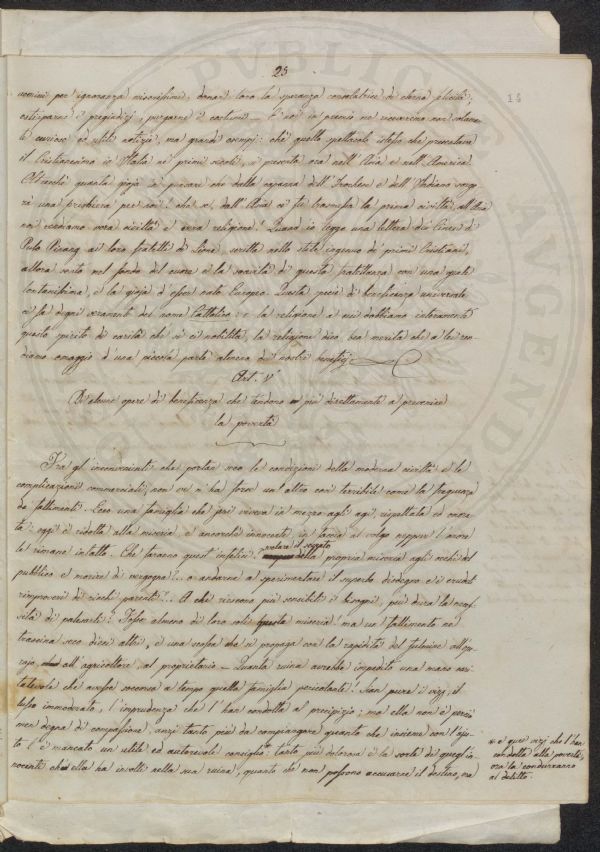 25
18
uomini per ignoranza miserissimi, donar loro la speranza consolatrice di eterna felicità,
estirparne i pregiudizi, purgarne i costumi — E noi in premio ne ricaviamo non solamen-
te curiose ed utili notizie, ma grandi esempi: chè quello spettacolo istesso che presentava
il Cristianesimo in Italia ne' primi secoli, si presenta ora nell'Asia e nell'America
Ed anche quanta gioja in pensare che dalla capanna dell'Irochese e dell'Indiano sorge-
rà una preghiera per noi! che se dall'Asia ci fu trasmessa la prima civiltà, all'Asia
noi rendiamo vera civiltà e vera religione! Quand'io leggo una lettera dei Cinesi di
Pulo Pinang ai loro fratelli di Lione, scritta nello stile ingenuo de' primi Cristiani,
allora sento nel fondo del cuore e la soavità di questa fratellanza con una gente
lontanissima, e la gioja d'esser nato Europeo. Questa specie di beneficenza universale
ci fa degni veramente del nome Cattolico: e la religione a cui dobbiamo interamente
questo spirito di carità che sì ci nobilita, la religione dico ben merita che a lei ren-
diamo omaggio d'una piccola parte almeno de' nostri beneficj.
Art. V
Di alcune opere di beneficenza che tendono più direttamente a prevenire
la povertà
Fra gl'inconvenienti che portan seco le condizioni della moderna civiltà e le
complicazioni commerciali, non ve n'ha forse un altro così terribile come la frequenza
de' fallimenti. Ecco una famiglia che jeri viveva in mezzo agli agi, rispettata ed onora-
ta: oggi è ridotta alla miseria, e ancorchè innocente, in faccia al volgo neppur l'onore
le rimane intatto. Che faranno quest'infelici?
della propria miseria agli occhi del
pubblico e morire di vergogna?.. o andarne a sperimentare il superbo disdegno e i crudi
rimproveri di ricchi parenti?.. A chi riescono più sensibili i bisogni, più dura la neces-
sità di palesarli? Fosse almeno di loro soli questa miseria: ma un fallimento ne
trascina seco dieci altri, è una scossa che si propaga con la rapidità del fulmine all'ope-
rajo, all'agricoltore, al proprietario — Quanta ruina avrebbe impedito una mano cari-
tatevole che avesse soccorsa a tempo quella famiglia pericolante! Sian pure i vizj, il
lusso immoderato, l'imprudenza che l'han condotta al precipizio; ma ella non è perciò
men degna di compassione, anzi tanto più da compiangere quanto che insieme con l'aju-
to l'è mancato un utile ed autorevole consiglio*: tanto più dolorosa è la sorte di quegl'in-
nocenti che ella ha involti nella sua ruina, quanto che non possono accusarne il destino, ma
* e quei vizj che l'han
condotta alla povertà,
ora la condurranno
al delitto.
PUBLICAE
AUGENDAE